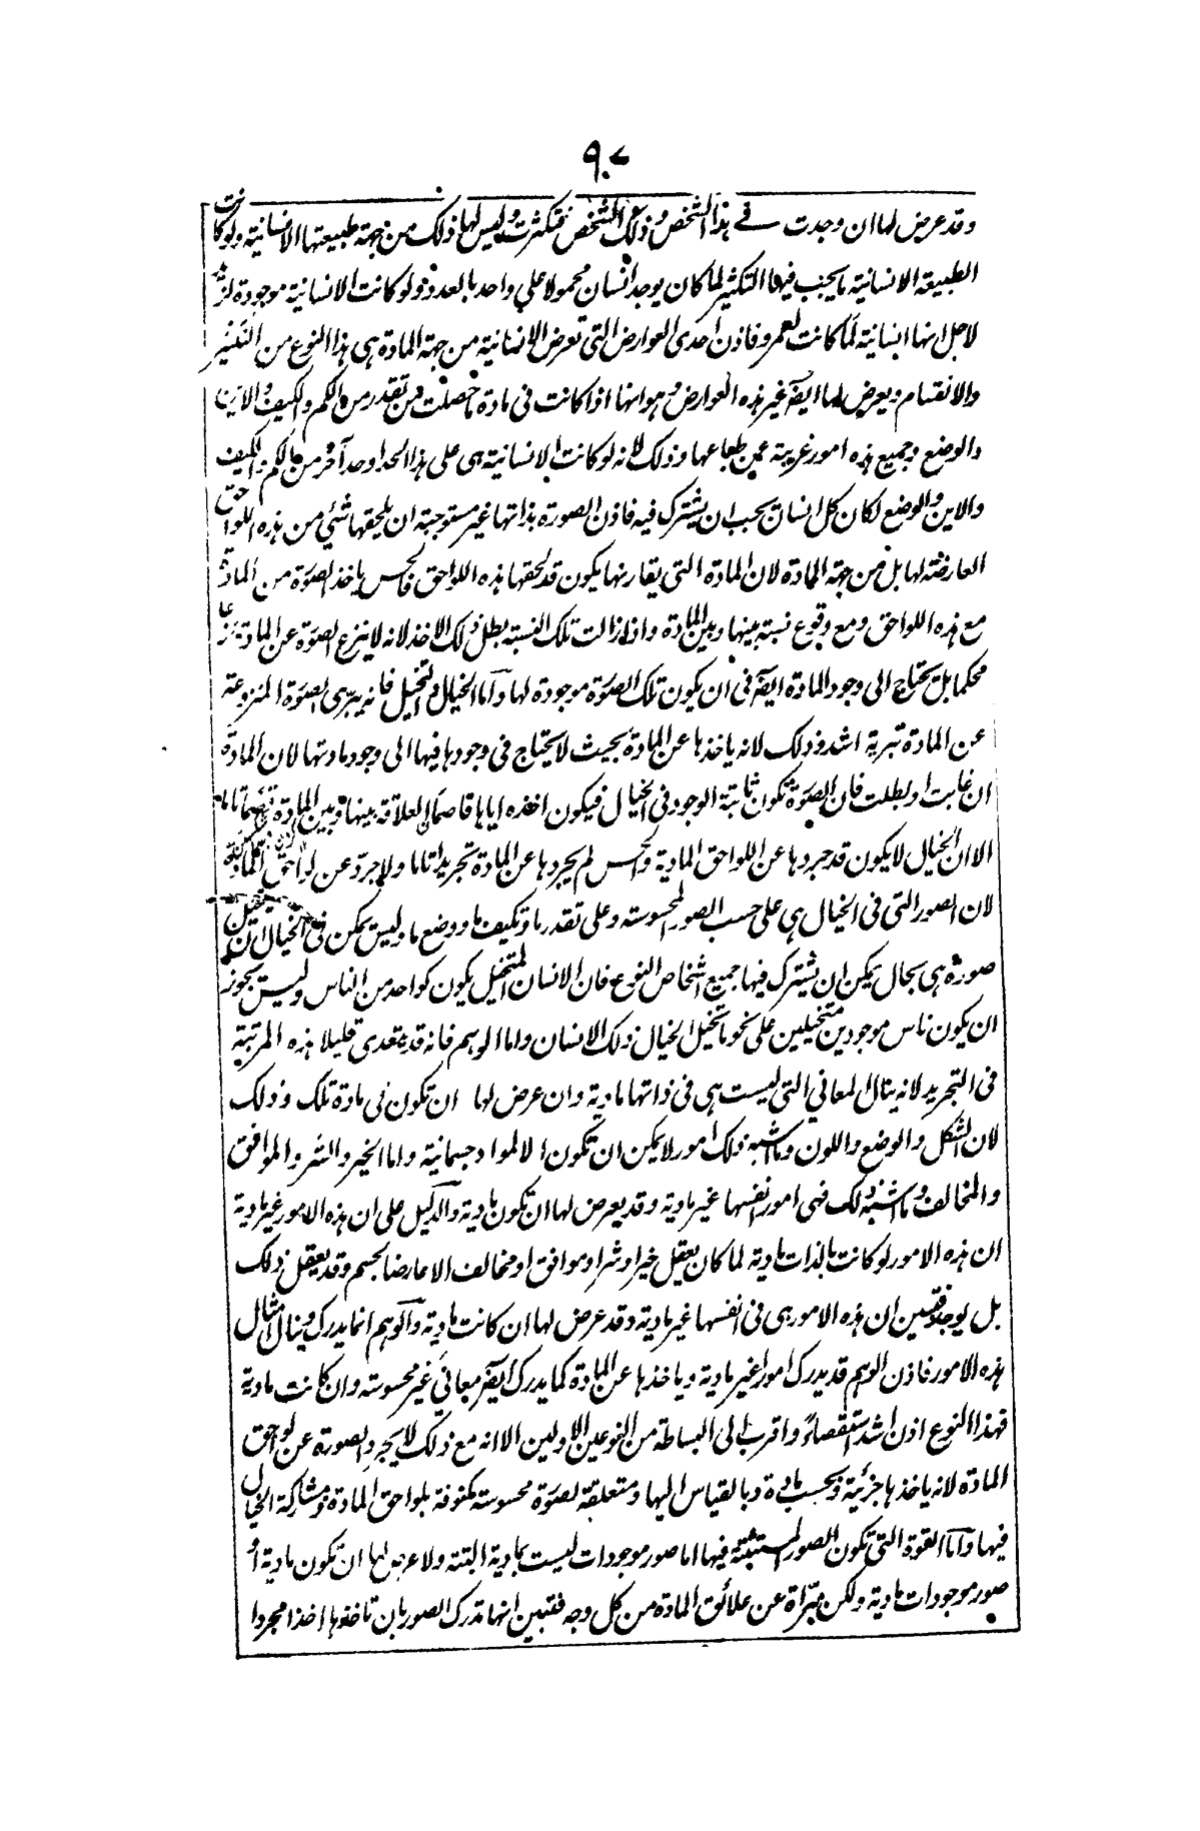 ٩٠٧
وقد عرض لها ان وجدت في هذا الشخص وذلك الشخص فتكثرت وليس لها ذلك من جهة طبيعتها الانسانية ولو كانت
الطبيعة الانسانية ما يجب فيها التكثر لما كان يوجد انسان محمولا على واحد بالعدد ولو كانت الانسانية موجودة لزيد
لاجل انها انسانية لما كانت لعمرو فاذن احدى العوارض التي تعرض للانسانية من جهة المادة هي هذا النوع من التكثر
والانقسام ويعرض لها ايضا غير هذه العوارض وهو انها اذا كانت في مادة ما حصلت من تقدر من الكم والكيف والاين
والوضع وجميع هذه امور غريبة عن طباعها وذلك لانه لو كانت الانسانية هي على هذا الحد او حد آخر من الكم والكيف
والاين والوضع لكان كل انسان يجب ان يشترك فيه فاذن الصورة بذاتها غير مستوجبة ان يلحقها شئي من هذه اللواحق
العارضة لها بل من جهة المادة لان المادة التي يقارنها يكون قد لحقها هذه اللواحق فالحس ياخذ الصورة من المادة
مع هذه اللواحق ومع وقوع نسبة بينها وبين المادة واذا زالت تلك النسبة بطل ذلك الاخذ لانه لا ينزع الصورة عن المادة نزعا
محكما بل يحتاج الى وجود المادة ايضا في ان يكون تلك الصورة موجودة لها واما الخيال والتخيل فانه يبرى الصورة المنزوعة
عن المادة تبرية اشد وذلك لانه ياخذها عن المادة بحيث لا يحتاج في وجودها فيها الى وجود مادتها لان المادة
ان غابت او بطلت فان الصورة تكون ثابتة الوجود في الخيال فيكون اخذه اياها قاصما للعلاقة بينها وبين المادة قصما تاما
الا ان الخيال لا يكون قد جردها عن اللواحق المادية والحس لم يجردها عن المادة تجريدا تاما ولا جرد عن لواحق المادة
لان الصور التي في الخيال هي على حسب الصور المحسوسة وعلى تقدر ما وتكيف ما ووضع ما وليس يمكن في الخيال ان تتخيل
صورة هي بحال يمكن ان يشترك فيها جميع اشخاص النوع فان الانسان المتخيل يكون كواحد من الناس وليس يجوز
ان يكون ناس موجودين متخيلين على نحو ما تخيل الخيال ذلك الانسان واما الوهم فانه قد يتعدى قليلا هذه المرتبة
في التجريد لانه ينال المعاني التي ليست هي في ذاتها مادية وان عرض لها ان تكون في مادة تلك وذلك
لان الشكل والوضع واللون وما اشبه ذلك امور لا يمكن ان تكون الا لمواد جسمانية واما الخير والشر والموافق
والمخالف وما اشبه ذلك فهي امور انفسها غير مادية وقد يعرض لها ان تكون مادية والدليل على ان هذه الامور غير مادية
ان هذه الامور لو كانت بالذات مادية لما كان يعقل خير او شر او موافق او مخالف الا عارضا لجسم وقد يعقل ذلك
بل يوجد فتبين ان هذه الامور هي في انفسها غير مادية وقد عرض لها ان كانت مادية والوهم انما يدرك وينال امثال
هذه الامور فاذن الوهم قد يدرك امورا غير مادية وياخذها عن المادة كما يدرك ايضا معاني غير محسوسة وان كانت مادية
فهذا النوع اذن اشد استقصاء واقرب الى البساطة من النوعين الاولين الا انه مع ذلك لا يجرد الصورة عن لواحق
المادة لانه ياخذها جزئية وبحسب مادة وبالقياس اليها ومتعلقة بصورة محسوسة مكنوفة بلواحق المادة وبمشاركة الخيال
فيها واما القوة التي تكون الصور المستثبتة فيها اما صور موجودات ليست بمادية البتة ولا عرض لها ان تكون مادية او
صور موجودات مادية ولكن مبراة عن علائق المادة من كل وجه فتبين انها تدرك الصور بان تاخذها اخذا مجردا